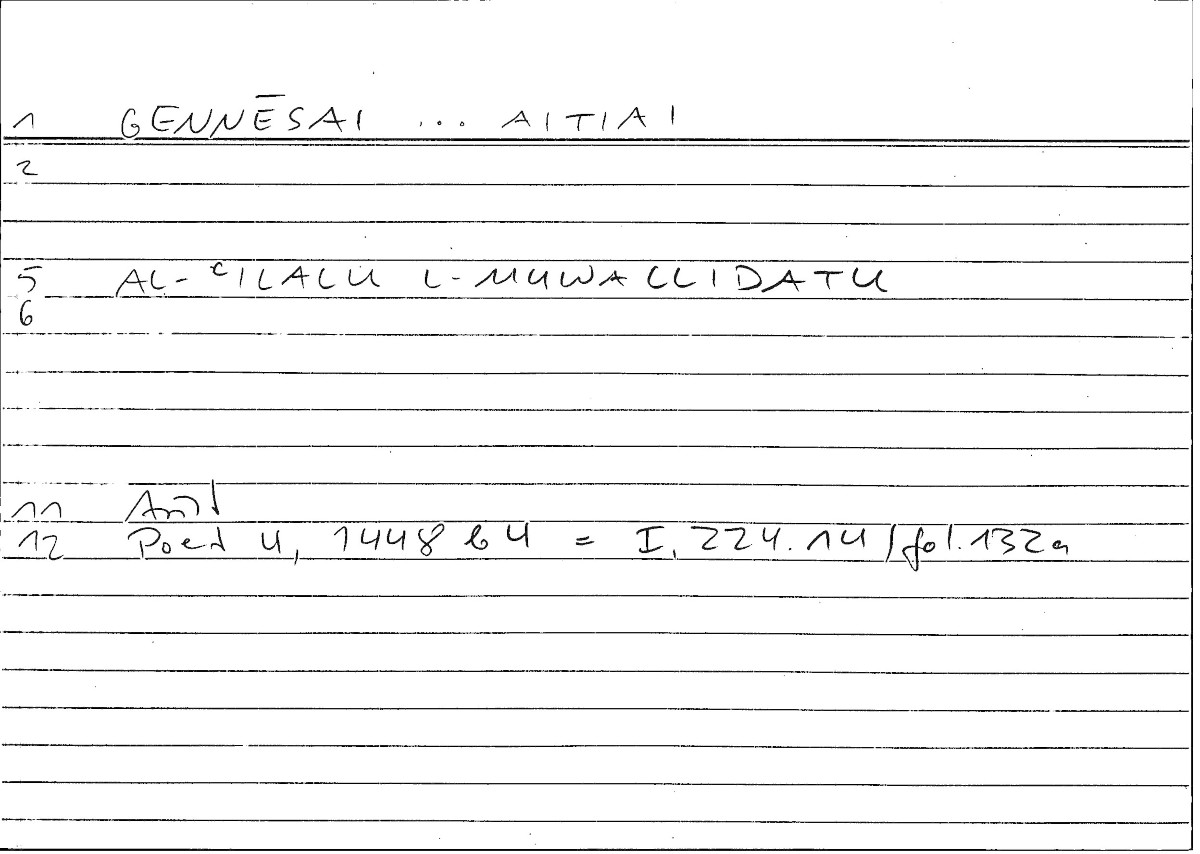 1 GENNĒSAI ... AITIAI
2
5 AL-ʿILALU L-MUWALLIDATU
6
11 Arist
12 Poet 4, 1448 b 4 = I, 224.14 / fol. 132a